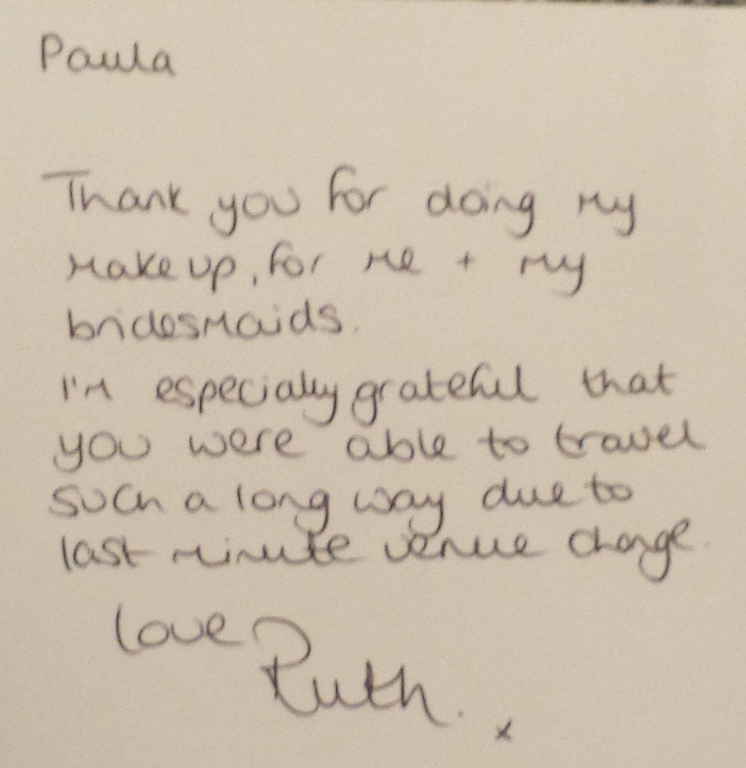 Paula
Thank you for doing my
makeup, for me + my
bridesmaids.
I'm especially grateful that
you were able to travel
such a long way due to
last minute venue change.
love
Ruth. x